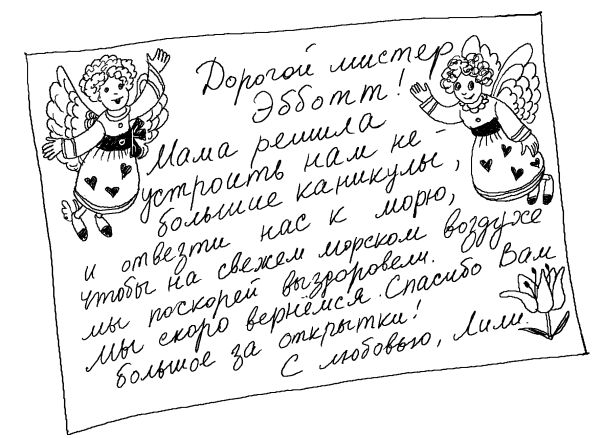 Дорогой мистер
Эбботт!
Мама решила
устроить нам не-
большие каникулы,
и отвезти нас к морю,
чтобы на свежем морском воздухе
мы поскорей выздоровели.
Мы скоро вернёмся. Спасибо Вам
большое за открытки!
С любовью, Лили.